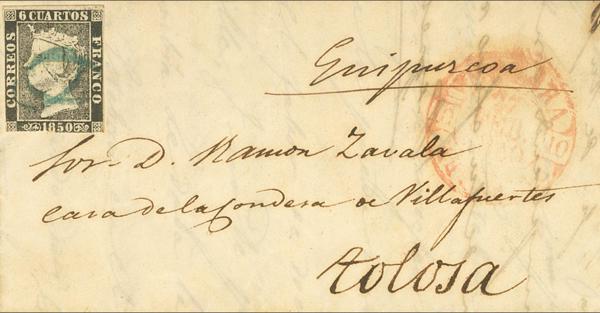 6 CUARTOS
CORREOS
FRANCO
1850
Guipurcoa
Sor. D. Ramon Zavala
Casa de la Condesa de Villafuertes
tolosa